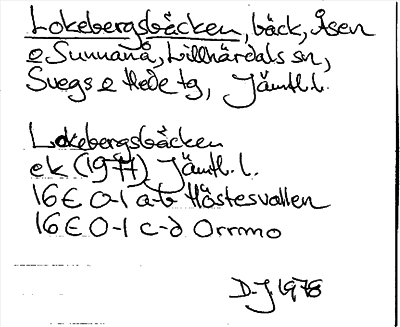 Lokebergsbäcken, bäck, Åsen
o Sunnanå, Lillhärdals sn,
Svegs o Hede tg, Jämtl. l.
Lokebergsbäcken
ek (1977) Jämtl. l.
16 E 0-1 a-b Höstesvallen
16 E 0-1 c-d Orrmo
D.J. 1978